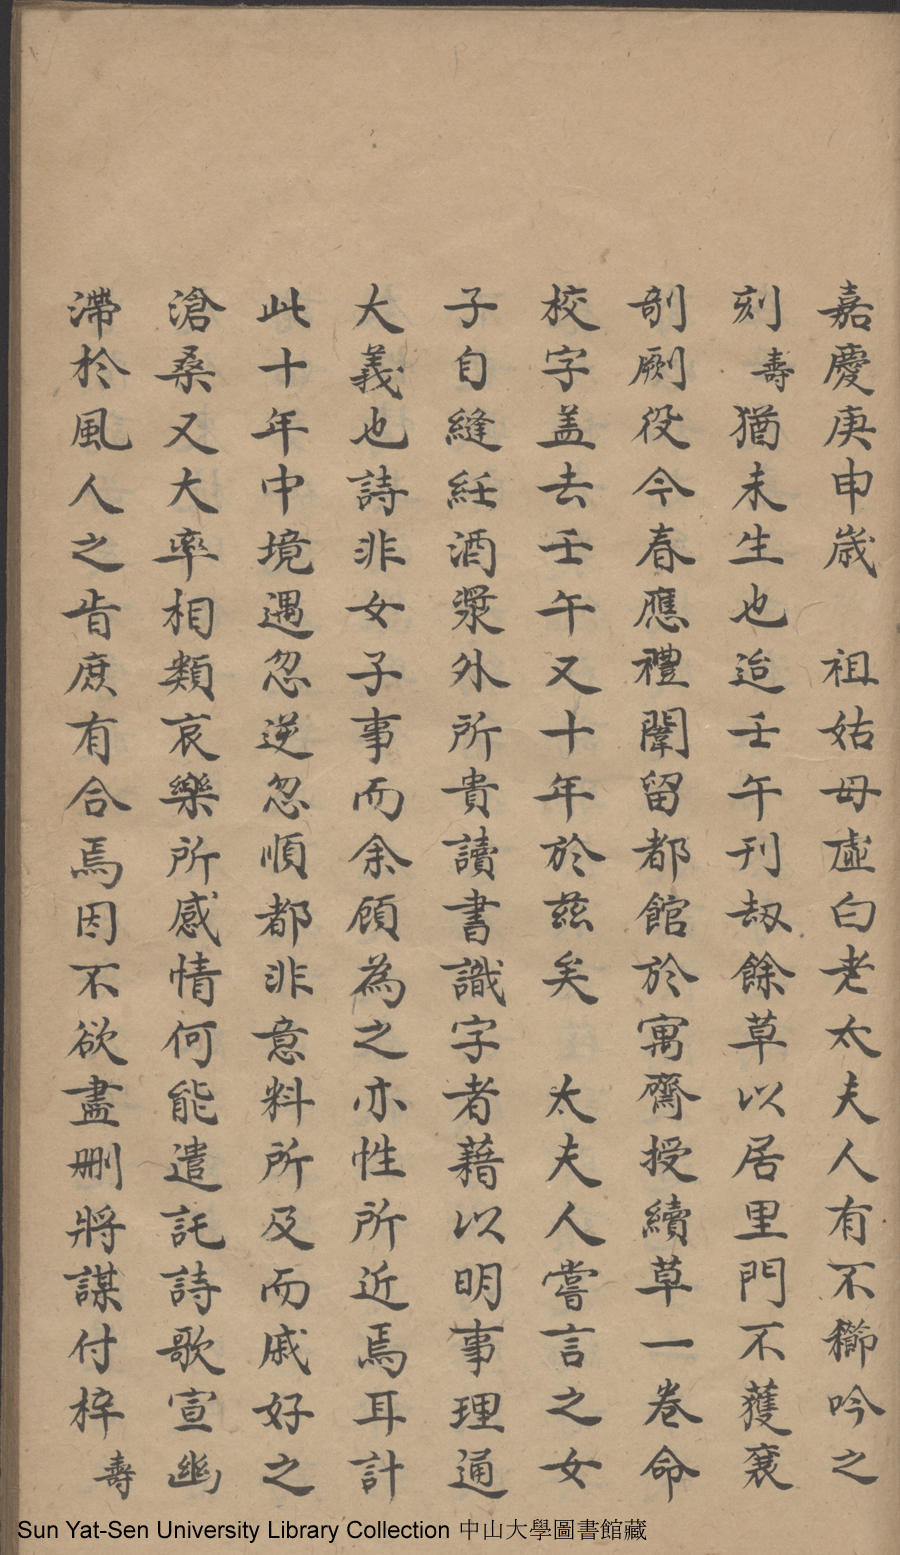 嘉慶庚申歲　祖姑母虛白老太夫人有不櫛吟之
刻壽猶未生也迨壬午刊刼餘草以居里門不獲襄
剞劂役今春應禮闈留都館於寓齋授續草一卷命
校字盖去壬午又十年於茲矣　太夫人嘗言之女
子自縫紝酒漿外所貴讀書識字者藉以明事理通
大義也詩非女子事而余顧為之亦性所近焉耳計
此十年中境遇忽逆忽順都非意料所及而戚好之
滄桑又大率相類哀樂所感情何能遣託詩歌宣幽
滯於風人之旨庶有合焉因不欲盡刪將謀付梓壽
Sun Yat-Sen University Library Collection 中山大學圖書館藏